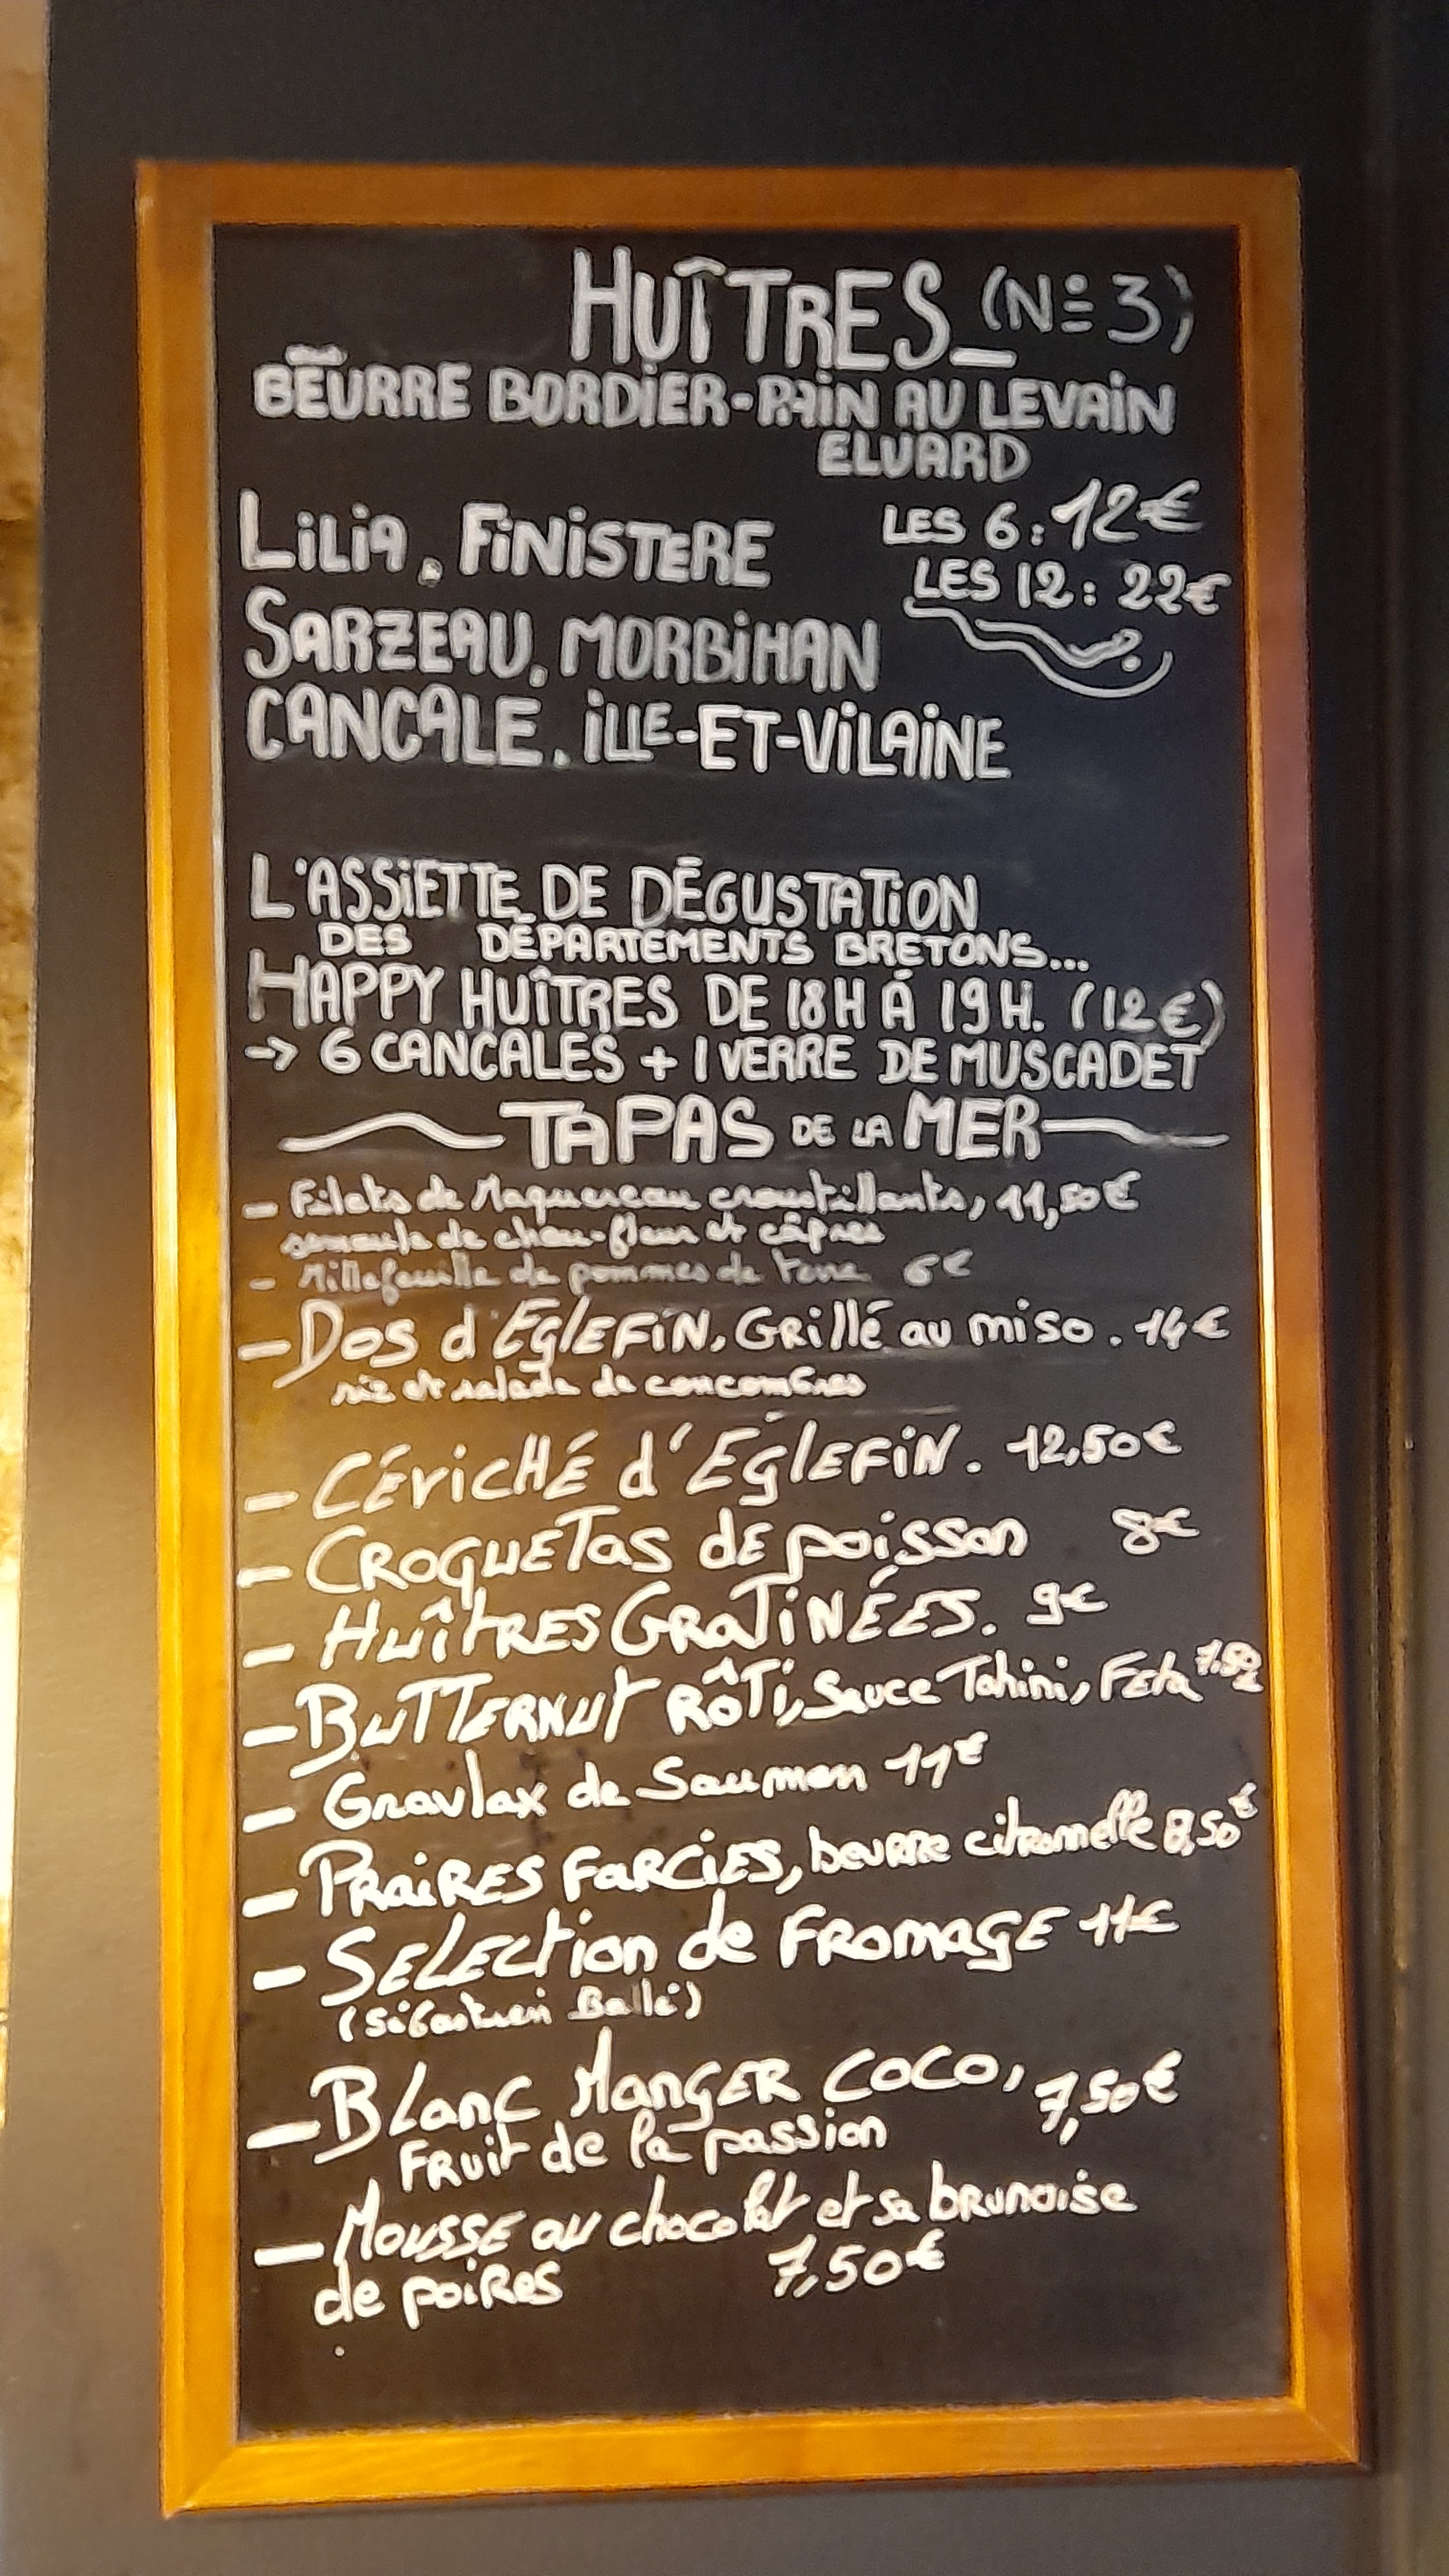 HUÎTRES_ (N° 3)
BEURRE BORDIER-PAIN AU LEVAIN
ELUARD
LES 6: 12€
LiLiA. FiNiSTERE
LES 12: 22€
SARZEAU, MORBiHAN
CANCALE. iLLE-ET-ViLAiNE
L'ASSiETTE DE DÉGUSTATiON
DES DÉPARTEMENTS BRETONS...
HAPPY HUÎTRES DE 18H À 19H. (12€)
→ 6 CANCALES + 1 VERRE DE MUSCADET
TAPAS DE LA MER
- Filets de Maquereau croustillants, 11,50€
semoule de chou-fleur et câpres
- Millefeuille de pommes de terre 6€
- Dos d'EglEFiN, Grillé au miso. 14€
riz et salade de concombres
- CÉvicHÉ d'EglEFiN. 12,50€
- CROQUETas dE poisson 8€
- HuîtRES GRaTiNÉES. 9€
- BuTTERNut RôTi, Sauce Tahini, FEta 7,50€
- Gravlax de Saumon 11€
- PRaiRES FaRCiES, beurre citronnelle 8,50€
- SELECtion de FROmaGE 11€
(Sébastien Ballé)
- BLanC ManGER COCO, 7,50€
FRuit de la passion
- MoUSSE au chocolat et sa brunoise
de poiRes 7,50€